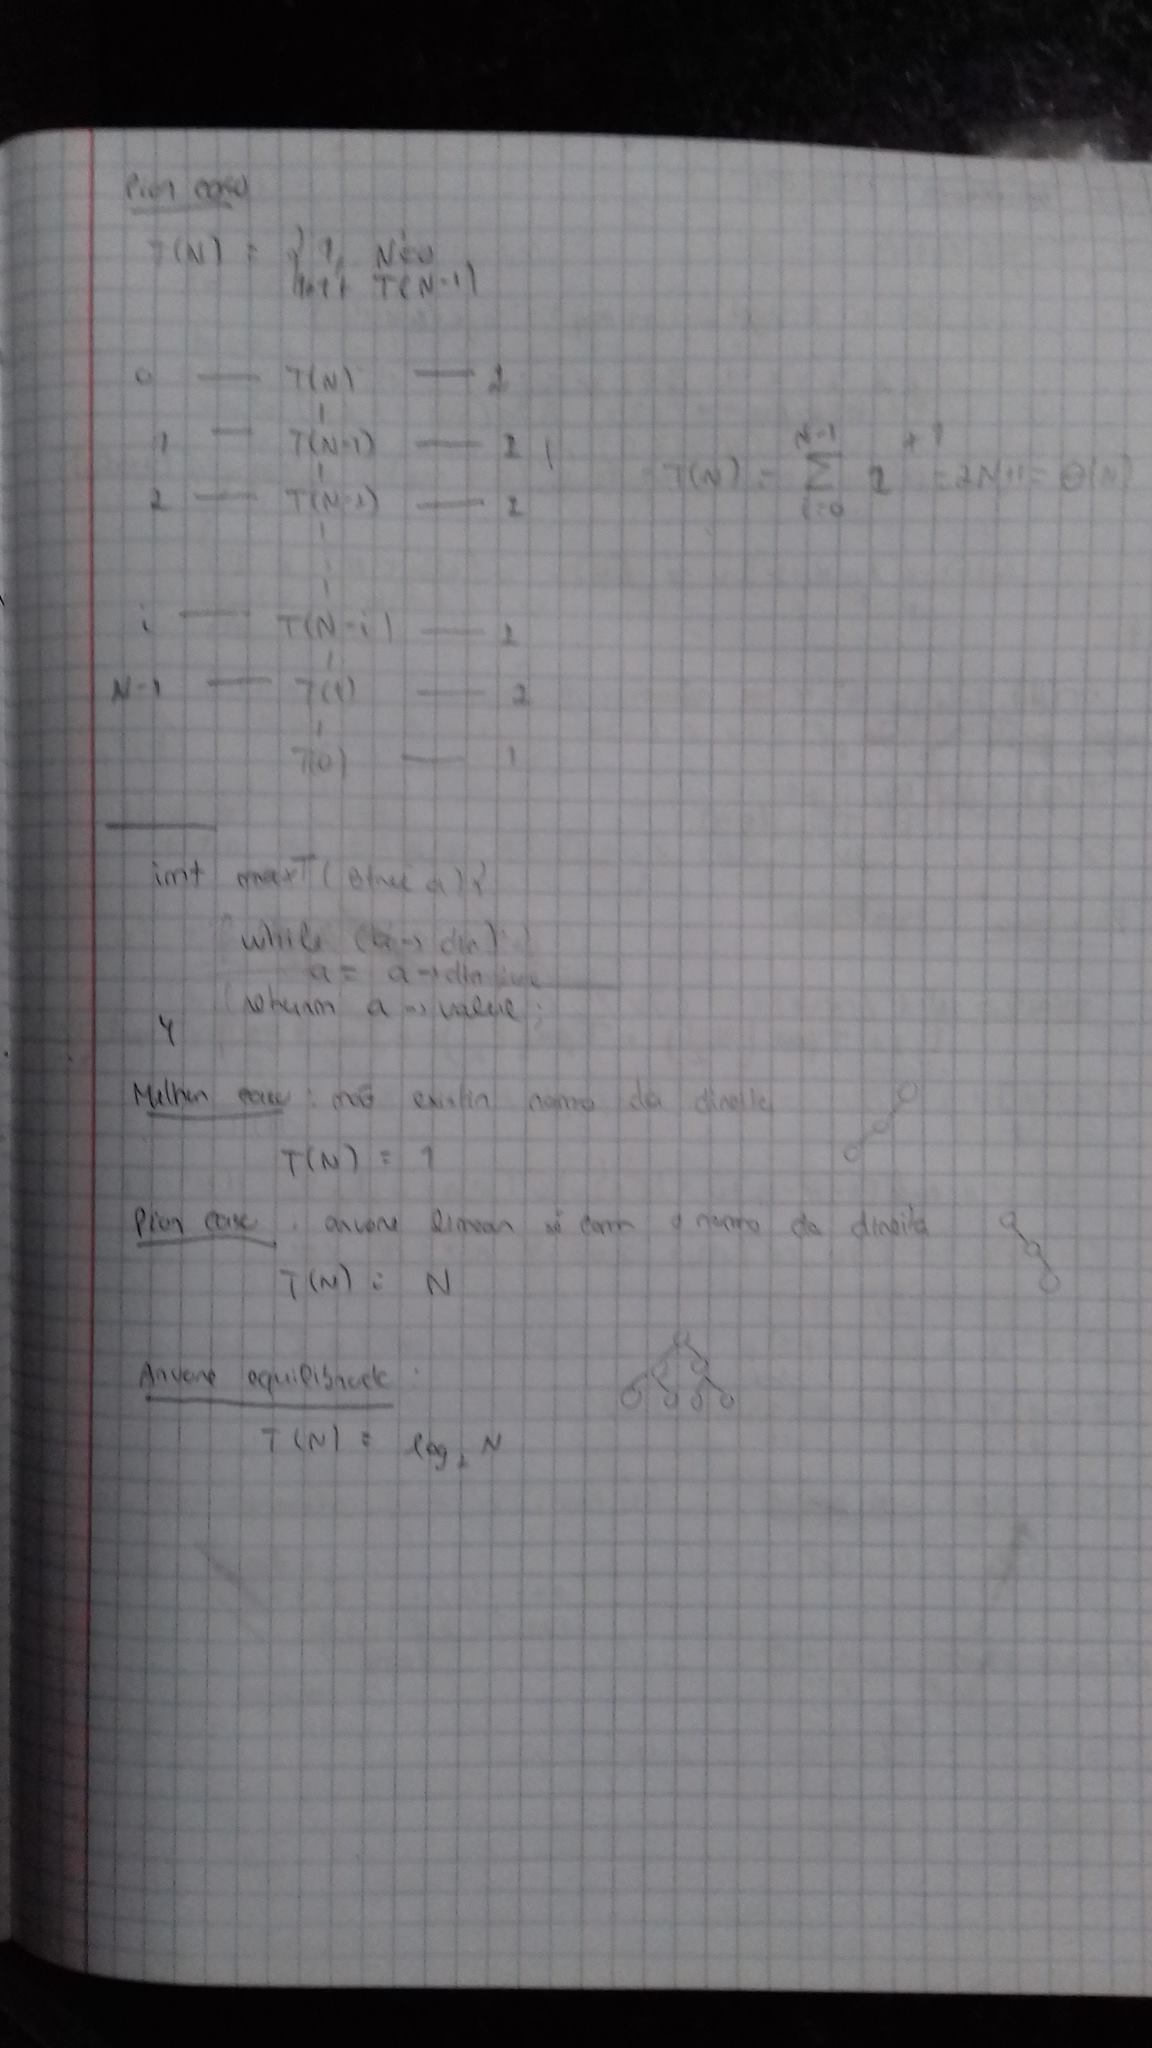 Pior caso
T(N) = { 1, N=0
1+1+ T(N-1)
0 — T(N) — 2
1 — T(N-1) — 2
T(N) = N-1 Σ i=0 2 + 1 = 2N+1 = θ(N)
2 — T(N-2) — 2
i — T(N-i) — 2
N-1 — T(1) — 2
T(0) — 1
int maxT (btree a) {
while (a → dir)
a = a → dir
return a → value;
}
Melhor caso : não existir ramo da direita
T(N) = 1
Pior caso : arvore linear só com o ramo da direita
T(N) = N
Arvore equilibrada :
T(N) = log₂ N